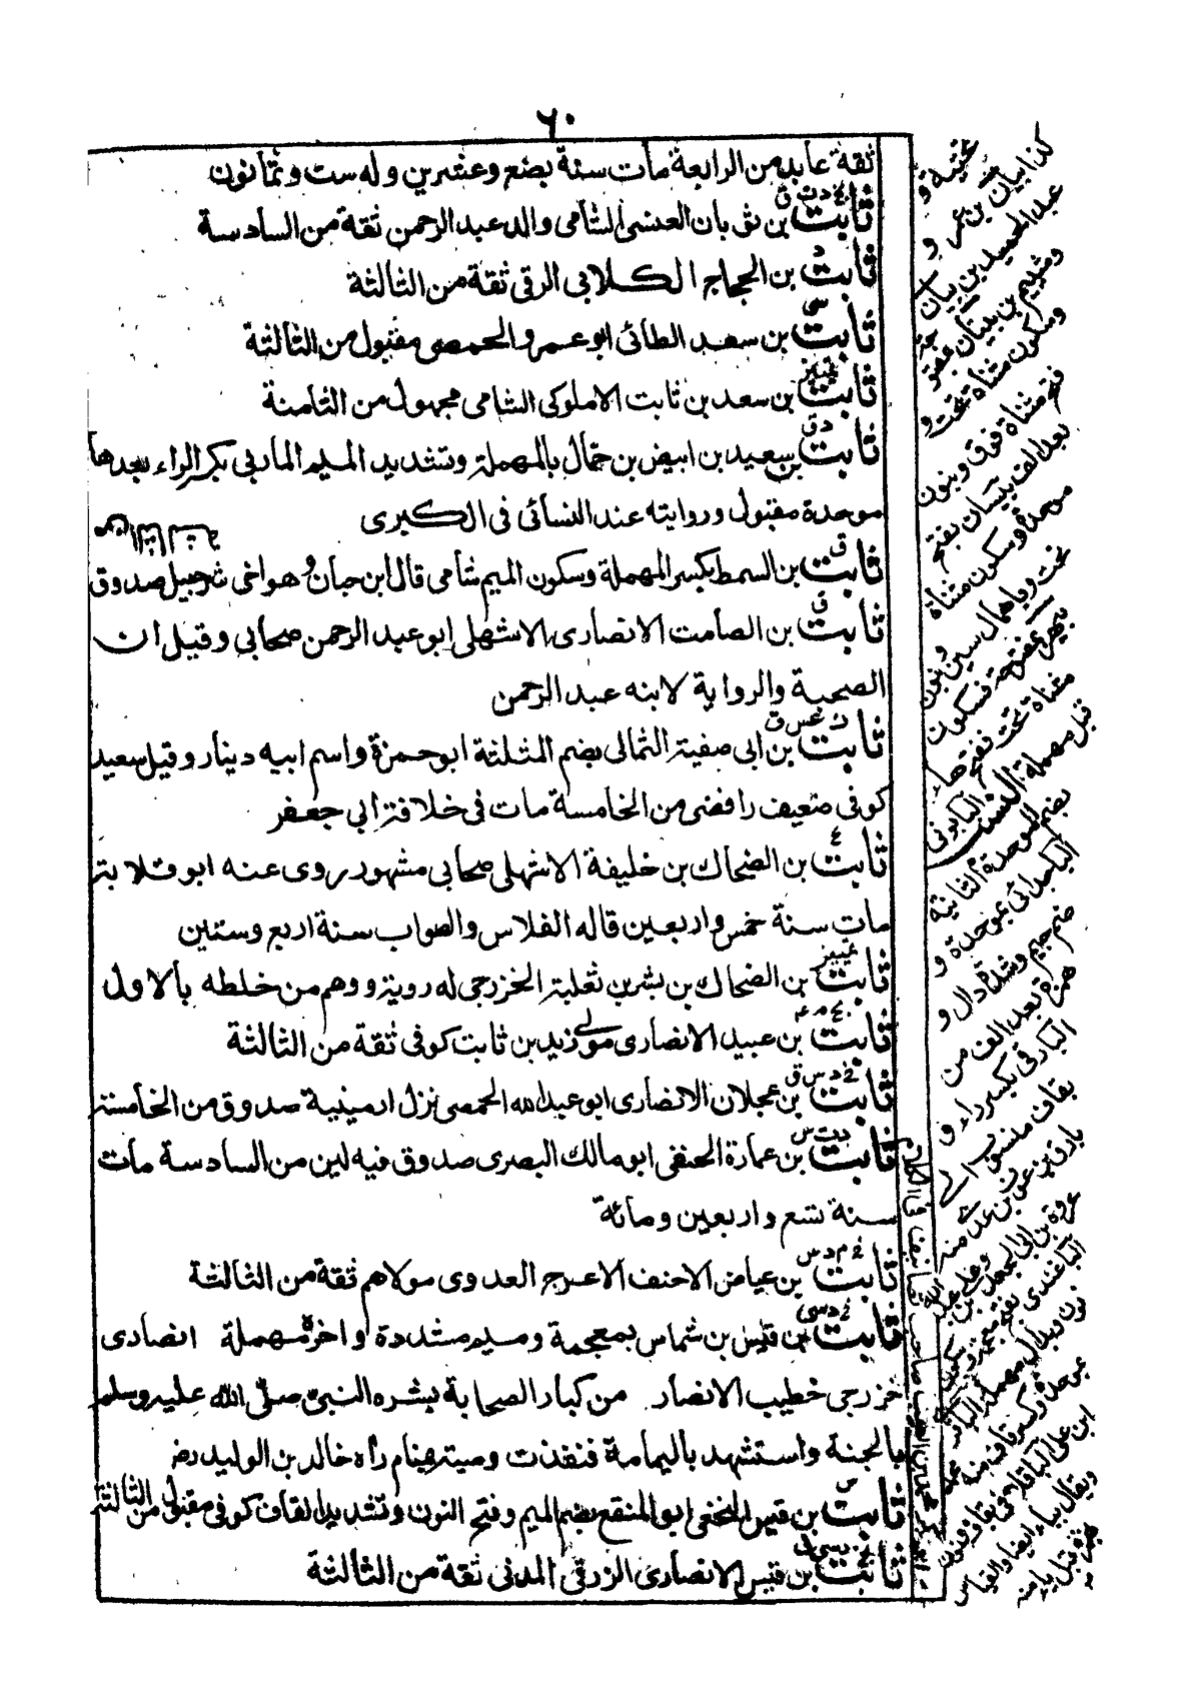 ٦٠
ثقة عابد من الرابعة مات سنة بضع وعشرين وله ست وثمانون
بخ د ت ق
ثابت بن ثوبان العنسي الشامى والد عبد الرحمن ثقة من السادسة
د
ثابت بن الحجاج الكلابي الرقى ثقة من الثالثة
سى
ثابت بن سعد الطائى ابو عمرو الحمصى مقبول من الثالثة
تمييز
ثابت بن سعد بن ثابت الاملوكى الشامى مجهول من الثامنة
د ق
ثابت بن سعيد بن ابيض بن حمال بالمهملة وتشديد الميم الماربى بكر الراء بعدها
موحدة مقبول وروايته عند النسائى فى الكبرى
ق
ثابت بن السمط بكسر المهملة وسكون الميم شامى قال ابن حبان هو اخى شرحبيل صدوق
ق
ثابت بن الصامت الانصارى الاشهلى ابو عبد الرحمن صحابي وقيل ان
الصحبة والرواية لابنه عبد الرحمن
ت عس ق
ثابت بن ابى صفية الثمالى بضم المثلثة ابو حمزة واسم ابيه دينار وقيل سعيد
كوفى ضعيف رافضى من الخامسة مات فى خلافة ابي جعفر
ع
ثابت بن الضحاك بن خليفة الاشهلى صحابي مشهور روى عنه ابو قلابة
مات سنة خمس واربعين قاله الفلاس والصواب سنة اربع وستين
تمييز
ثابت بن الضحاك بن بشر بن ثعلبة الخزرجى له روية ووهم من خلطه بالاول
بخ م عم
ثابت بن عبيد الانصارى مولى زيد بن ثابت كوفى ثقة من الثالثة
خ د س ق
ثابت بن عجلان الانصارى ابو عبد الله الحمصى نزل ارمينية صدوق من الخامسة
د ت س
ثابت بن عمارة الحنفى ابو مالك البصرى صدوق فيه لين من السادسة مات
سنة تسع واربعين ومائة
خ م د س
ثابت بن عياض الاحنف الاعرج العدوى مولاهم ثقة من الثالثة
خ د سى
ثابت بن قيس بن شماس بمعجمة وميم مشددة واخره مهملة انصارى
خزرجى خطيب الانصار من كبار الصحابة بشره النبى صلى الله عليه وسلم
بالجنة واستشهد باليمامة فنفذت وصيته بمنام راه خالد بن الوليد رض
س
ثابت بن قيس النخعى ابو المنقع بضم الميم وفتح النون وتشديد القاف كوفى مقبول من الثالثة
ثابت بن قيس الانصارى الزرقى المدنى ثقة من الثالثة
كذا بيان بن عمر و
عبد الحميد بن بيان
وسكون مثناة تحت و
فتح مثناة فوق وبنون
بعد الف بيسان بفتح
موحدة وسكون مثناة
تحت وباهمال سين وبنون
مثناة تحت ففتح هاء
قبل مهملة النسب البابونى
بضم الموحدة الثانية
الباجدائى بموحدة و
ضم جيم وشدة دال و
همزة بعد الف من
البارقى بكسر راء و
بقاف منسوب الى
بارق بن عوف بن عدى منه
عروة بن ابى الجعد
نون وبدال مهملة